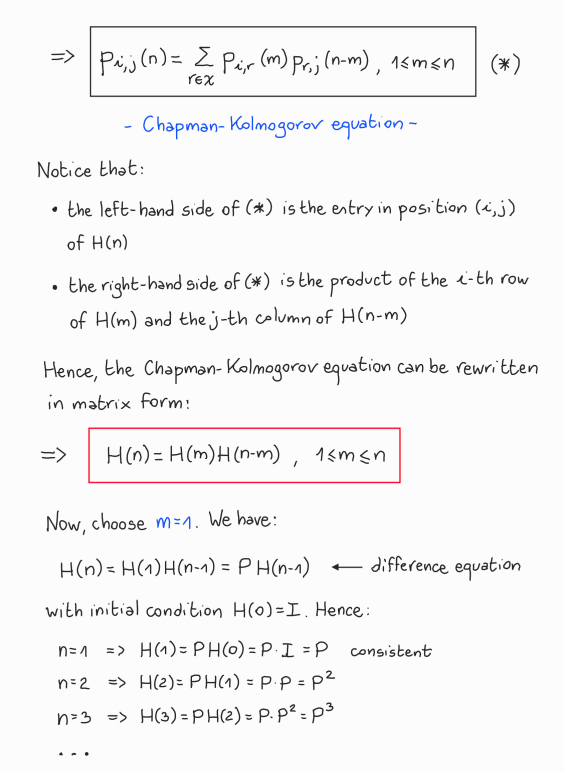 => p_{i,j}(n) = Σ_{r∈χ} p_{i,r}(m) p_{r,j}(n-m) , 1≤m≤n (*)
- Chapman-Kolmogorov equation -
Notice that:
• the left-hand side of (*) is the entry in position (i,j)
of H(n)
• the right-hand side of (*) is the product of the i-th row
of H(m) and the j-th column of H(n-m)
Hence, the Chapman-Kolmogorov equation can be rewritten
in matrix form:
=> H(n) = H(m)H(n-m) , 1≤m≤n
Now, choose m=1. We have:
H(n) = H(1)H(n-1) = P H(n-1) ← difference equation
with initial condition H(0)=I. Hence:
n=1 => H(1) = PH(0) = P·I = P consistent
n=2 => H(2) = PH(1) = P·P = P²
n=3 => H(3) = PH(2) = P·P² = P³
...